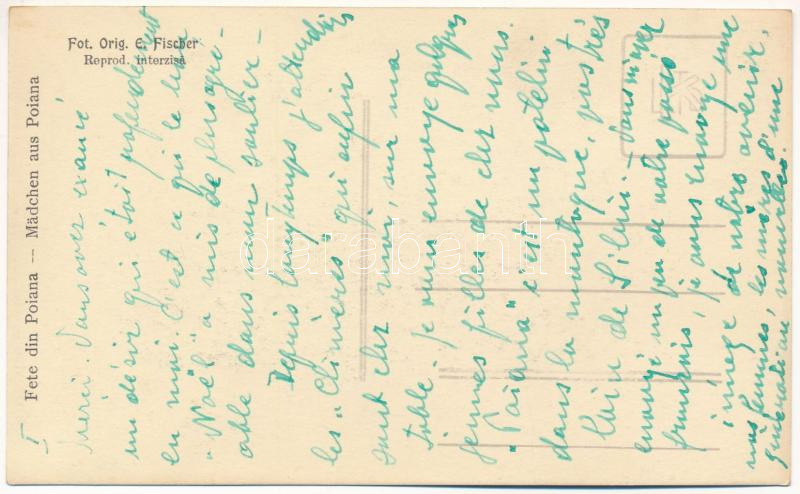 Fot. Orig. E. Fischer
Reprod. interzisă
Fete din Poiana — Mädchen aus Poiana
I
Merci. Vous avez exaucé
un désir qui était profondement
en moi. C'est ce que le bon
"Noël" a mis de plus agré-
able dans mon soulier —
Depuis longtemps j'attendais
les "Chimères" qui enfin
sont chez moi, sur ma
table. Je vous envoye quelques
jeunes filles de chez nous.
"Poiana" c'est un patelin
dans la montagne, pas très
loin de Sibiu. Vous m'avez
envoyé un peu de votre passé
français, je vous envoye une
image de notre avenir,
nos femmes, les mères d'une
génération nouvelle.
darabanth